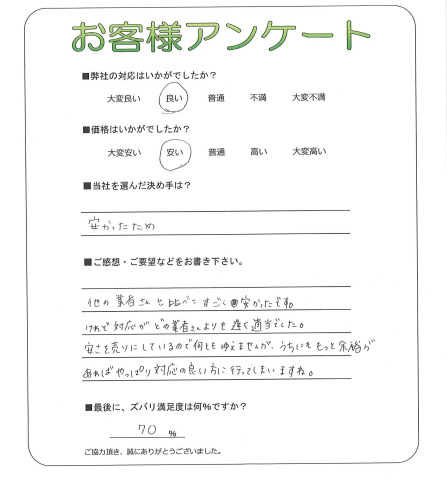 お客様アンケート
■弊社の対応はいかがでしたか?
大変良い 良い 普通 不満 大変不満
■価格はいかがでしたか?
大変安い 安い 普通 高い 大変高い
■当社を選んだ決め手は?
安かったため
■ご感想・ご要望などをお書き下さい。
他の業者さんと比べてすごく安かったです。
けれど対応がどの業者さんよりも遅く適当でした。
安さを売りにしているので何ともゆえませんが、うちにももっと余裕が
あればやっぱり対応の良い方に行ってしまいますね。
■最後に、ズバリ満足度は何%ですか?
70 %
ご協力頂き、誠にありがとうございました。